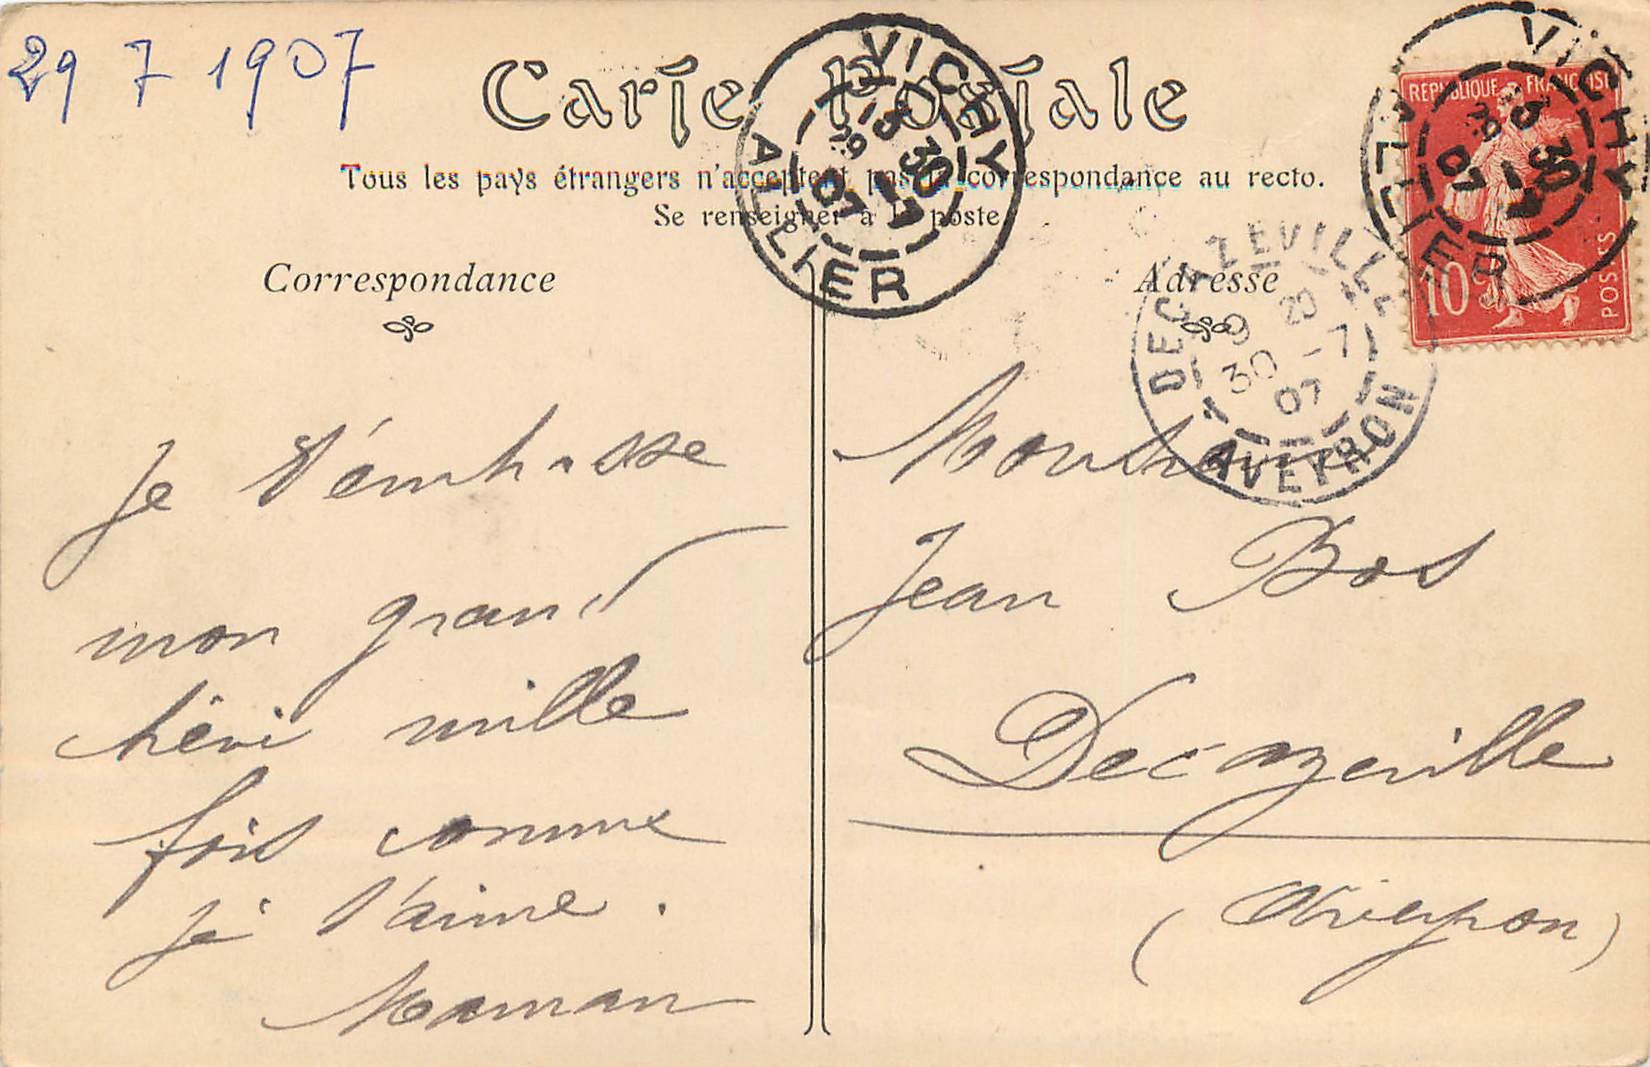 29 7 1907
Carte Postale
Tous les pays étrangers n'acceptent pas la correspondance au recto.
Se renseigner à la poste
Correspondance
Je t'embrasse
mon grand
chéri mille
fois comme
je t'aime.
Maman
Adresse
Jean Bos
Decazeville
(Aveyron)
VICHY
ALLIER
15 30
29 -7
07
VICHY
ALLIER
15 30
29 -7
07
DECAZEVILLE
9 20
30 -7
07
AVEYRON
REPUBLIQUE FRANÇAISE
10
POSTES